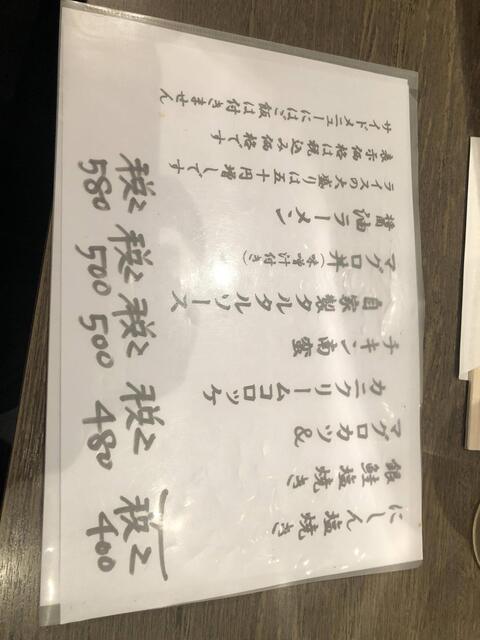 にしん塩焼き
税込
400
銀鮭塩焼き
マグロカツ&
カニクリームコロッケ
税込
480
チキン南蛮
自家製タルタルソース
税込
500
マグロ丼(味噌汁付き)
税込
500
醤油ラーメン
税込
580
ライスの大盛りは五十円増しです
表示価格は税込み価格です
サイドメニューにはご飯は付きません